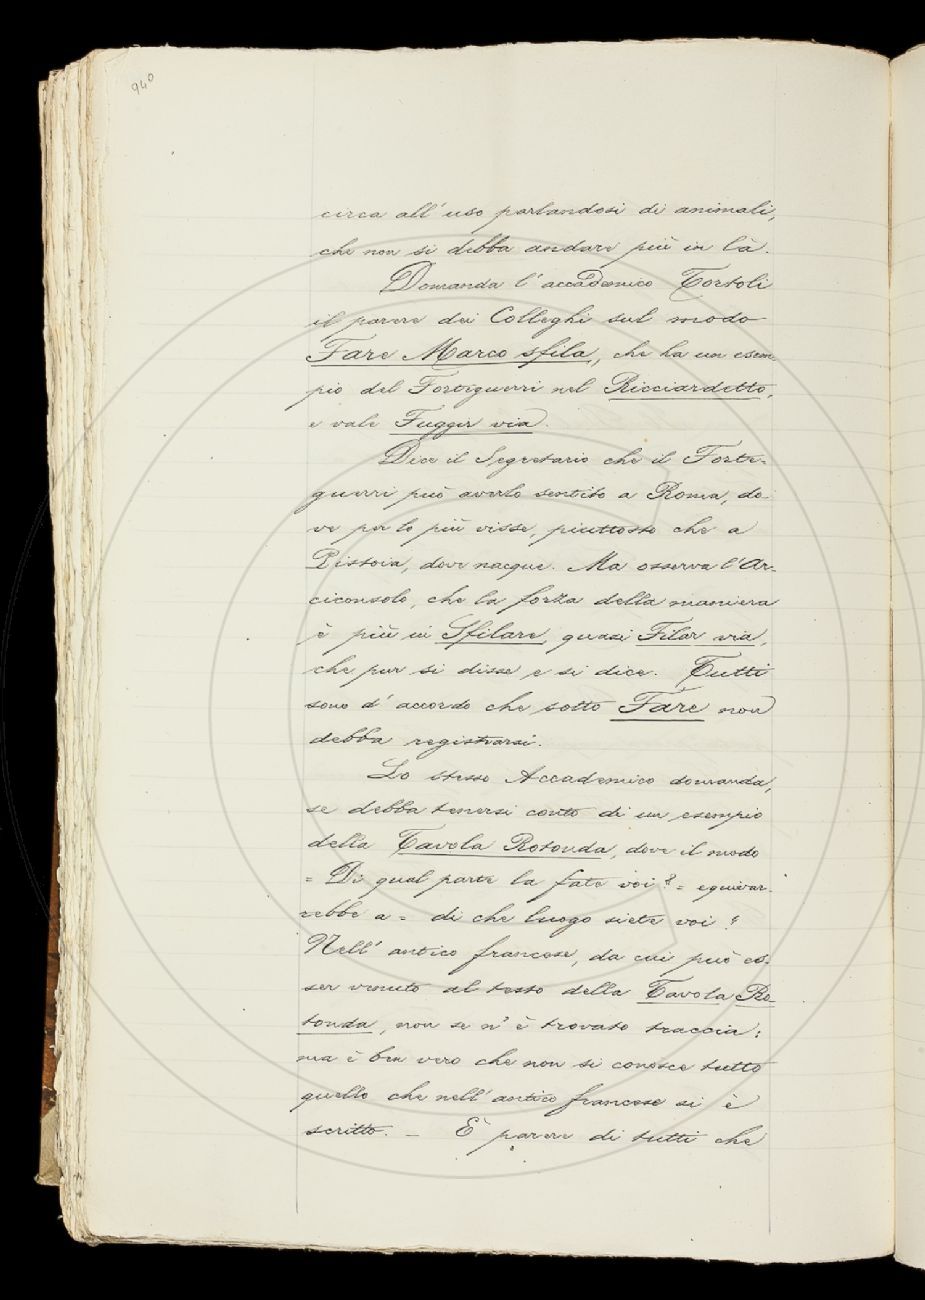 940
circa all'uso parlandosi di animali,
che non si debba andare più in là.
Domanda l'accademico Tortoli
il parere dei Colleghi sul modo
Fare Marco sfila, che ha un esem-
pio del Fortiguerri nel Ricciardetto,
e vale Fuggir via.
Dice il Segretario che il Forti-
guerri può averlo sentito a Roma, do-
ve per lo più visse, piuttosto che a
Pistoia, dove nacque. Ma osserva l'Ar-
ciconsolo, che la forza della maniera
è più in Sfilare, quasi Filar via,
che pur si disse e si dice. Tutti
sono d'accordo che sotto Fare non
debba registrarsi.
Lo stesso Accademico domanda,
se debba tenersi conto di un esempio
della Tavola Rotonda, dove il modo
= Di qual parte la fate voi? = equivar-
rebbe a = di che luogo siete voi?
Nell'antico francese, da cui può es-
ser venuto al testo della Tavola Ro-
tonda, non se n'è trovato traccia;
ma è ben vero che non si conosce tutto
quello che nell'antico francese si è
scritto. — È parere di tutti che